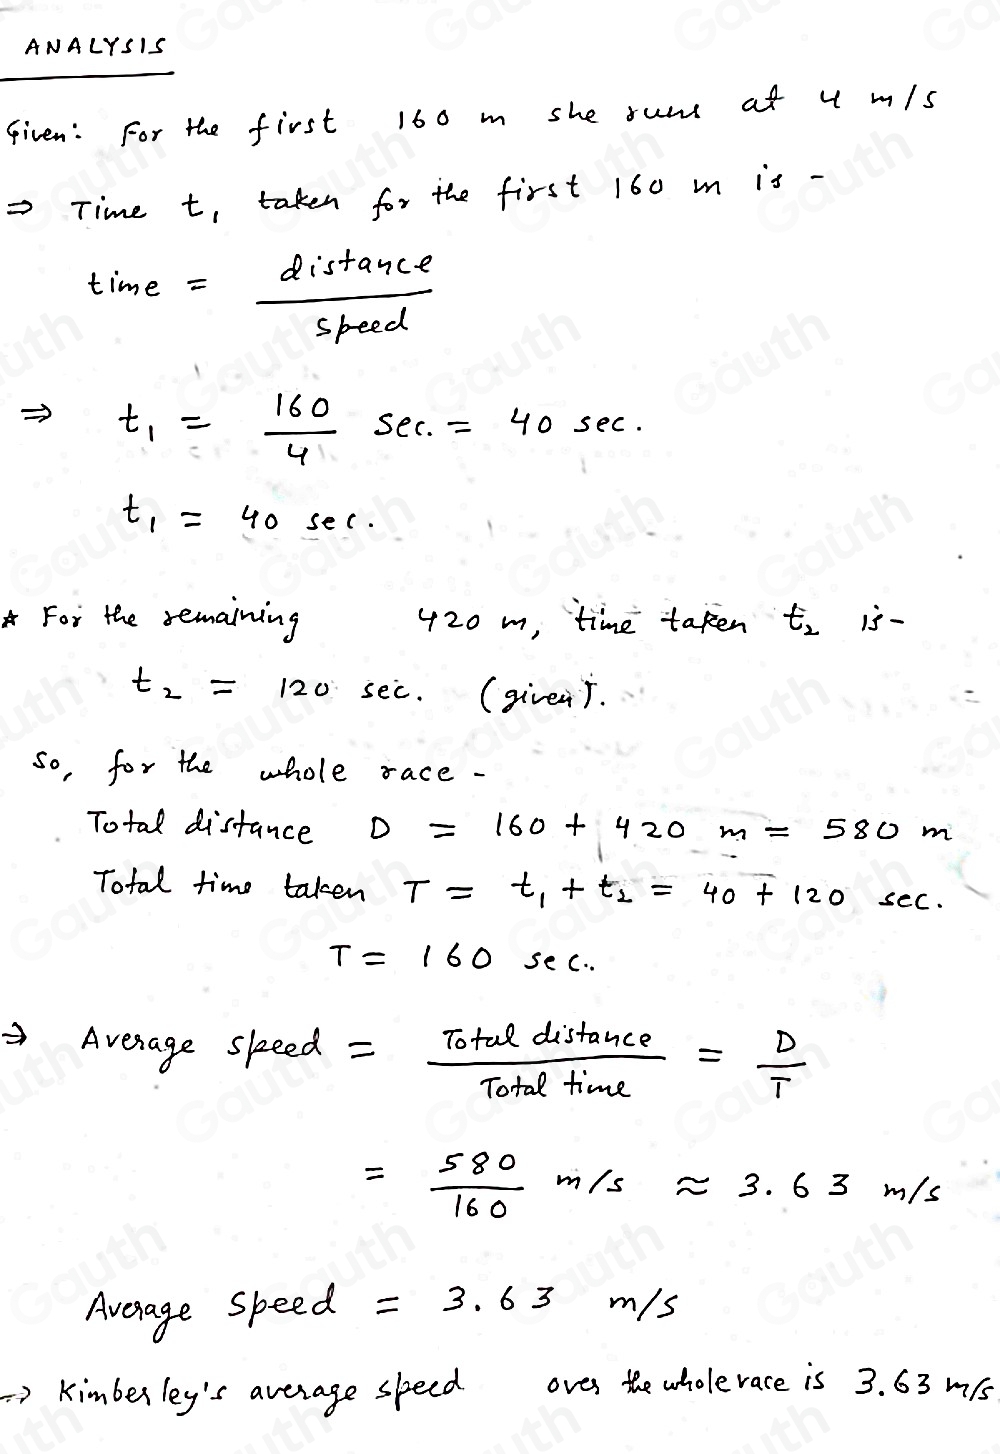 ANALYSIS
Given: For the first 160 m she runs at 4 m/s
⇒ Time t₁ taken for the first 160 m is -
time = distance / speed
⇒ t₁ = 160/4 sec. = 40 sec.
t₁ = 40 sec.
* For the remaining 420 m, time taken t₂ is -
t₂ = 120 sec. (given).
So, for the whole race -
Total distance D = 160 + 420 m = 580 m
Total time taken T = t₁ + t₂ = 40 + 120 sec.
T = 160 sec..
⇒ Average speed = Total distance / Total time = D/T
= 580/160 m/s ≈ 3.63 m/s
Average Speed = 3.63 m/s
→ Kimberley's average speed over the whole race is 3.63 m/s